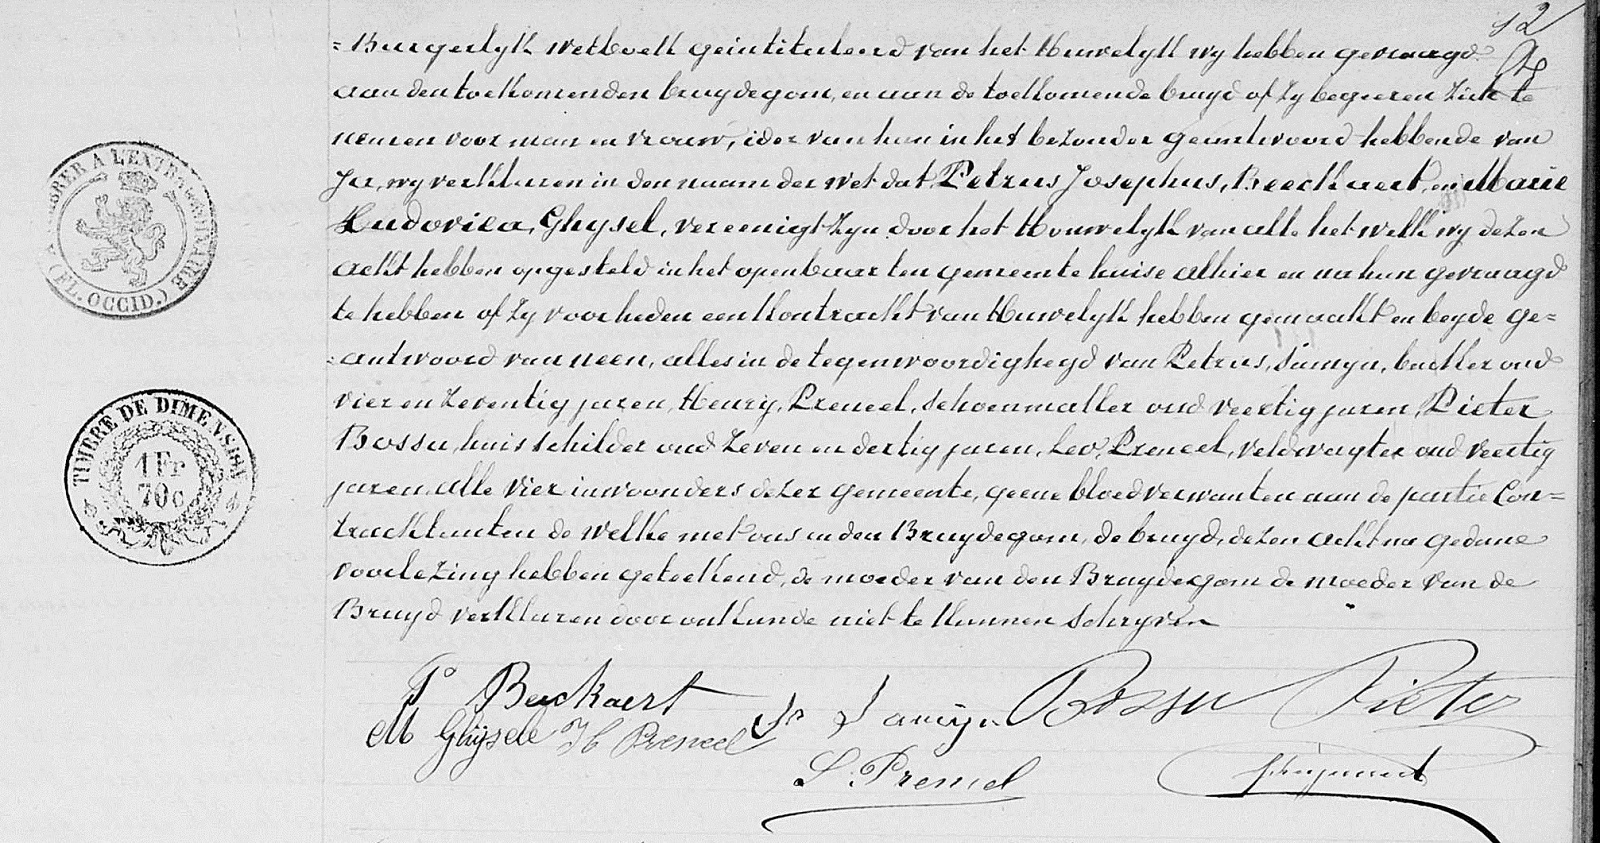 12
= Burgerlyk wetboek geintituleerd van het Huwelyk wy hebben gevraagd
aan den toekomenden bruydegom, en aan de toekomende bruyd of zy begeeren zich te
nemen voor man en vrouw, ider van hun in het bezonder geantwoord hebbende van
Ja, wy verklaren in den naam der wet dat Petrus Josephus, Beeckaert, en Marie
Ludovica, Ghysel, vereenigt zyn door het Houwelyk van alle het welk wy dezen
ackt hebben opgesteld in het openbaar ten gemeente huise alhier en na hun gevraagd
te hebben of zy voorheden een Kontrackt van Huwelyk hebben gemaakt en beyde ge=
=antwoord van neen, alles in de tegenwoordigheyd van Petrus, Samyn, backer oud
vier en zeventig jaren, Henry, Preneel, schoenmaker oud veertig jaren, Pieter
Bossu, huisschilder oud zeven en dertig jaren, Leo, Preneel, veldwagter oud veertig
jaren, alle vier inwoonders dezer gemeente, geene bloedverwanten aan de partie Con=
tracktanten de welke met ons en den Bruydegom, de bruyd, dezen ackt na gedane
voorlezing hebben geteekend, de moeder van den Bruydegom de moeder van de
Bruyd verklaren door onkunde niet te kunnen schryven
TIMBRE A L'EXTRAORDINAIRE
(FL. OCCID.)
TIMBRE DE DIMENSION
1 Fr
70c
P Beeckaert
Samyn
Bossu Pieter
M Ghysele
H Preneel
L. Preneel